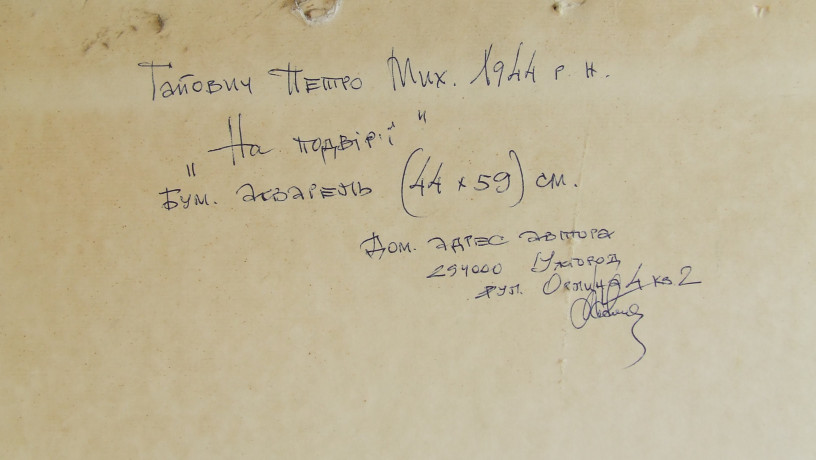 Тапович Петро Мих. 1944 р. н.
"На подвір'ї"
Бум. акварель (44 x 59) см.
Дом. адрес автора
294000 Ужгород
вул. 4 кв. 2